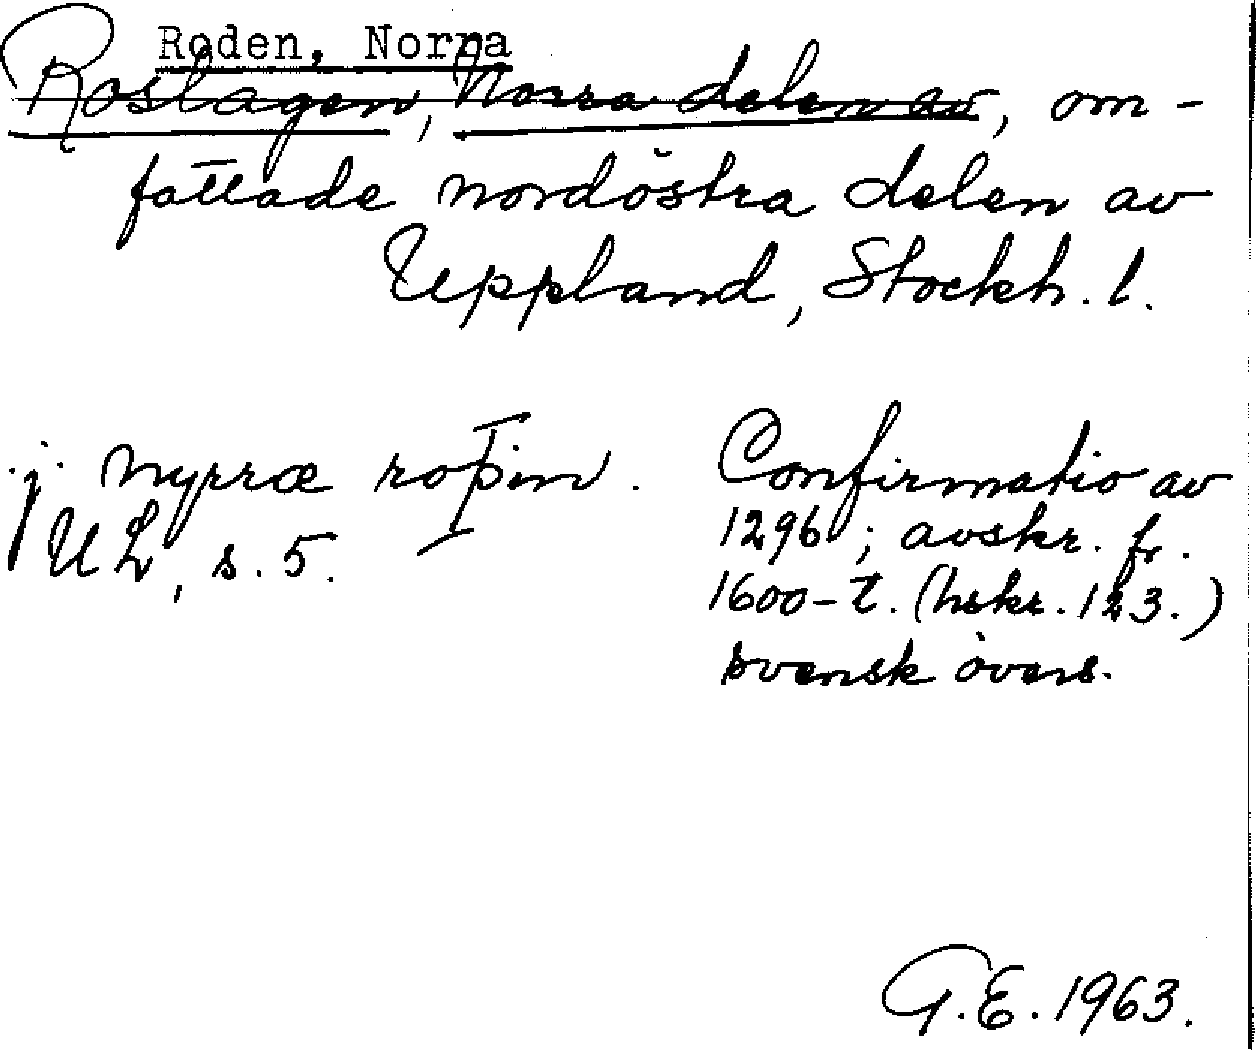 Roden, Norra
Roslagen, Norra delen av, om-
fattade nordöstra delen av
Uppland, Stockh. l.
.j. nyrræ roþin. Confirmatio av
UL, s. 5. 1296; avskr. fr.
1600-t. (hskr. 123.)
svensk övers.
G.E. 1963.